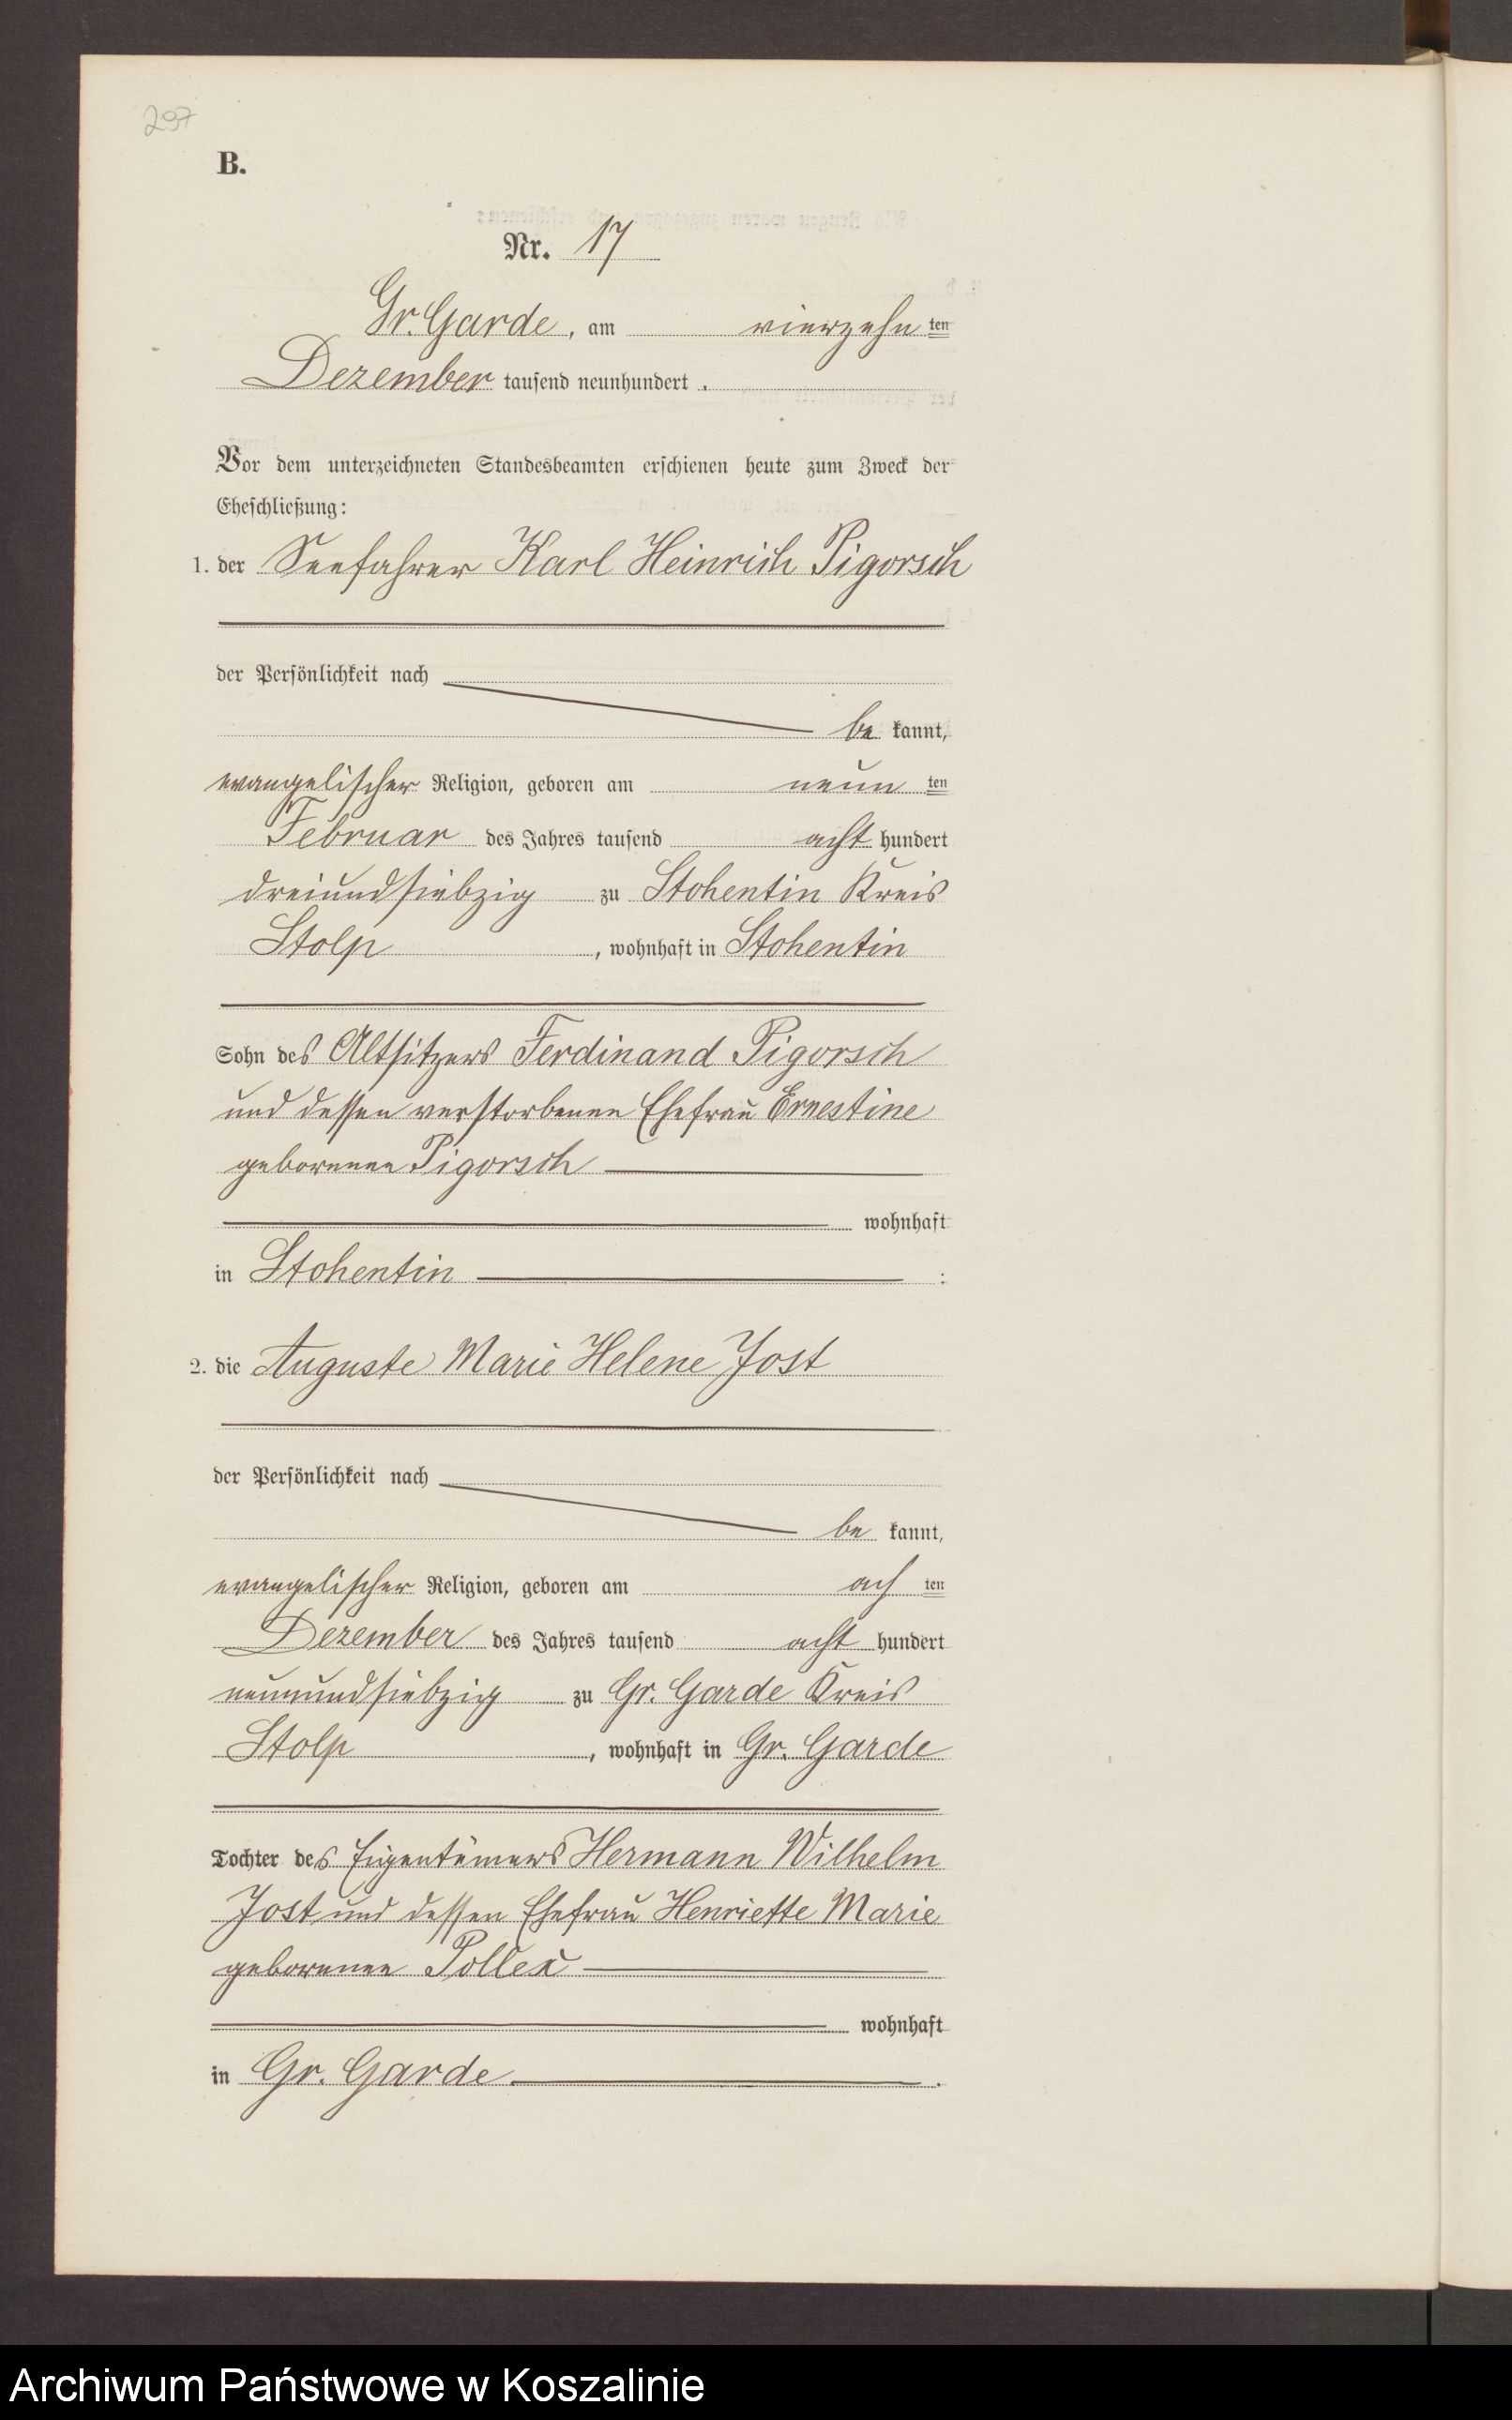 297
B.
Nr. 17
Gr. Garde, am vierzehn ten
Dezember tausend neunhundert .
Vor dem unterzeichneten Standesbeamten erschienen heute zum Zweck der
Eheschließung:
1. der Seefahrer Karl Heinrich Pigorsch
der Persönlichkeit nach
be kannt,
evangelischer Religion, geboren am neun ten
Februar des Jahres tausend acht hundert
dreiundsiebzig zu Stohentin Kreis
Stolp , wohnhaft in Stohentin
Sohn des Altsitzers Ferdinand Pigorsch
und dessen verstorbenen Ehefrau Ernestine
geborenen Pigorsch
wohnhaft
in Stohentin :
2. die Auguste Marie Helene Jost
der Persönlichkeit nach
be kannt,
evangelischer Religion, geboren am ach ten
Dezember des Jahres tausend acht hundert
neunundsiebzig zu Gr. Garde Kreis
Stolp , wohnhaft in Gr. Garde
Tochter des Eigentümers Hermann Wilhelm
Jost und dessen Ehefrau Henriette Marie
geborenen
wohnhaft
in Gr. Garde .
Archiwum Państwowe w Koszalinie